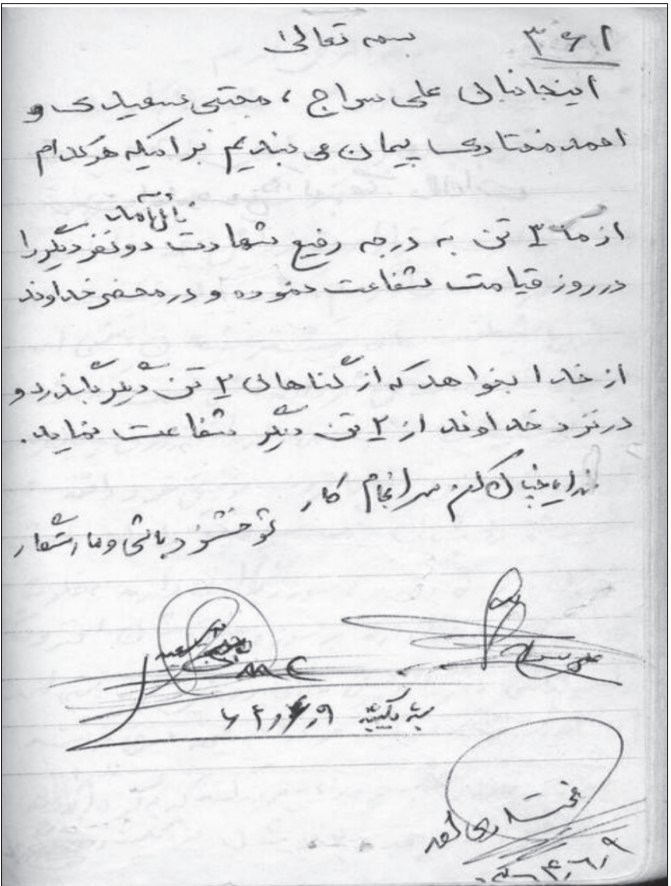 ۳۶۲
بسمه تعالی
اینجانبان علی سراج ، مجتبی سعیدی و
احمد مختاری پیمان می بندیم بر اینکه هر کدام
نائل آمد
از ما ۳ تن به درجه رفیع شهادت دو نفر دیگر را
در روز قیامت شفاعت نموده و در محضر خداوند
از خدا بخواهد که از گناهان ۲ تن دیگر بگذرد و
در نزد خداوند از ۲ تن دیگر شفاعت نماید.
خدایا چنان کن سرانجام کار
تو خشنود باشی و ما رستگار
علی سراج
مختاری احمد